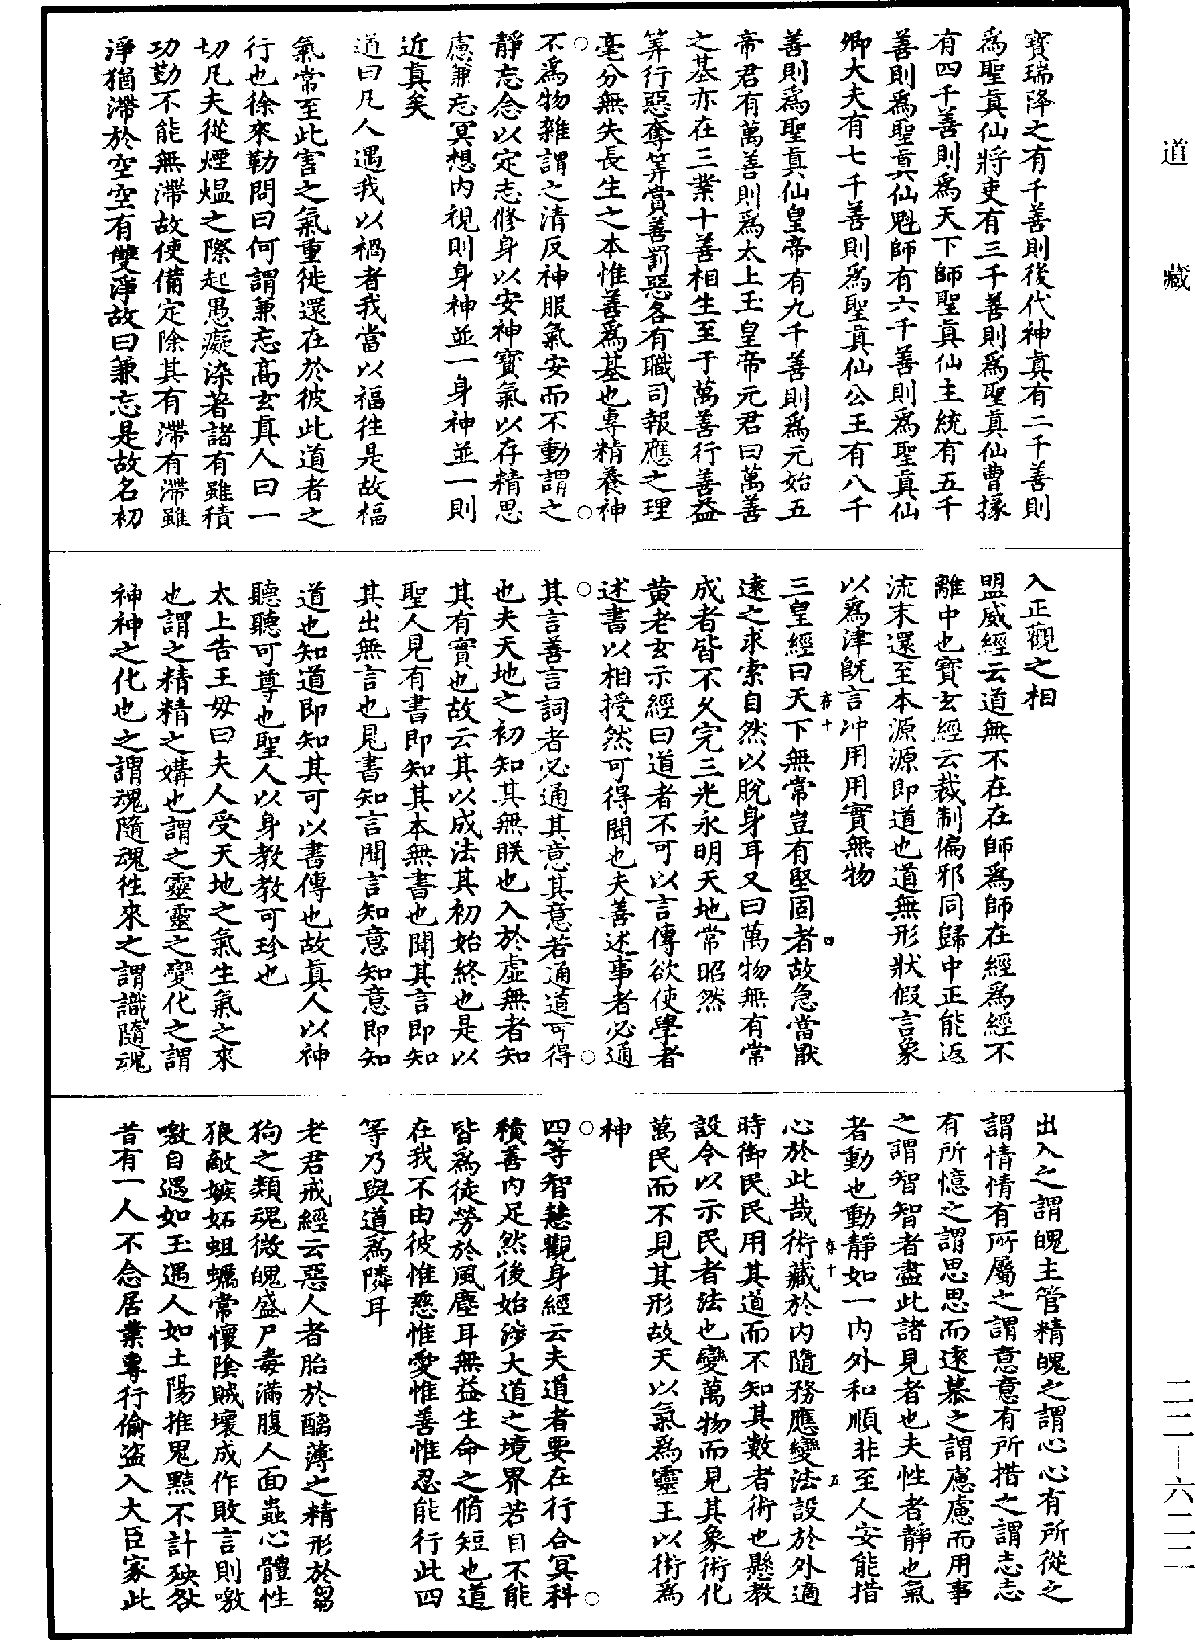 道藏
寶瑞降之有千善則後代神真有二千善則
為聖真仙將吏有三千善則為聖真仙曹掾
有四千善則為天下師聖真仙主統有五千
善則為聖真仙魁師有六千善則為聖真仙
卿大夫有七千善則為聖真仙公王有八千
善則為聖真仙皇帝有九千善則為元始五
帝君有萬善則為太上玉皇帝元君曰萬善
之基亦在三業十善相生至于萬善行善益
筭行惡奪筭賞善罰惡各有職司報應之理
毫分無失長生之本惟善為基也專精養神
不為物雜謂之清反神服氣安而不動謂之
靜忘念以定志修身以安神寶氣以存精思
慮兼忘冥想內視則身神並一身神並一則
近真矣
道曰凡人遇我以禍者我當以福往是故福
氣常至此害之氣重徙還在於彼此道者之
行也徐來勒問曰何謂兼忘高玄真人曰一
切凡夫從煙熅之際起愚癡染著諸有雖積
功勤不能無滯故使備定除其有滯有滯雖
淨猶滯於空空有雙淨故曰兼忘是故名初
入正觀之相
盟威經云道無不在在師為師在經為經不
離中也寶玄經云裁制偏邪同歸中正能返
流末還至本源源即道也道無形狀假言象
以為津旣言沖用用實無物
三皇經曰天下無常豈有堅固者故急當厭
遠之求索自然以脫身耳又曰萬物無有常
成者皆不久完三光永明天地常昭然
黃老玄示經曰道者不可以言傳欲使學者
述書以相授然可得聞也夫善述事者必通
其言善言詞者必通其意其意若通道可得
也夫天地之初知其無朕也入於虛無者知
其有實也故云其以成法其初始終也是以
聖人見有書即知其本無書也聞其言即知
其出無言也見書知言聞言知意知意即知
道也知道即知其可以書傳也故真人以神
聽聽可尊也聖人以身教教可珍也
太上告王母曰夫人受天地之氣生氣之來
也謂之精精之媾也謂之靈靈之變化之謂
神神之化也之謂魂隨魂往來之謂識隨魂
出入之謂魄主管精魄之謂心心有所從之
謂情情有所屬之謂意意有所措之謂志志
有所憶之謂思思而遠慕之謂慮慮而用事
之謂智智者盡此諸見者也夫性者靜也氣
者動也動靜如一內外和順非至人安能措
心於此哉術藏於內隨務應變法設於外適
時御民民用其道而不知其數者術也懸教
設令以示民者法也變萬物而見其象術化
萬民而不見其形故天以氣為靈王以術為
神
四等智慧觀身經云夫道者要在行合冥科
積善內足然後始涉大道之境界若目不能
皆為徒勞於風塵耳無益生命之脩短也道
在我不由彼惟慈惟愛惟善惟忍能行此四
等乃與道為隣耳
老君戒經云惡人者胎於醨薄之精形於芻
狗之類魂微魄盛尸毒滿腹人面蟲心體性
狼敵嫉妬蛆蠣常懷陰賊壞成作敗言則噭
噭自遇如玉遇人如土陽推鬼黠不計殃咎
昔有一人不念居業專行偷盜入大臣家此
二二-六二二